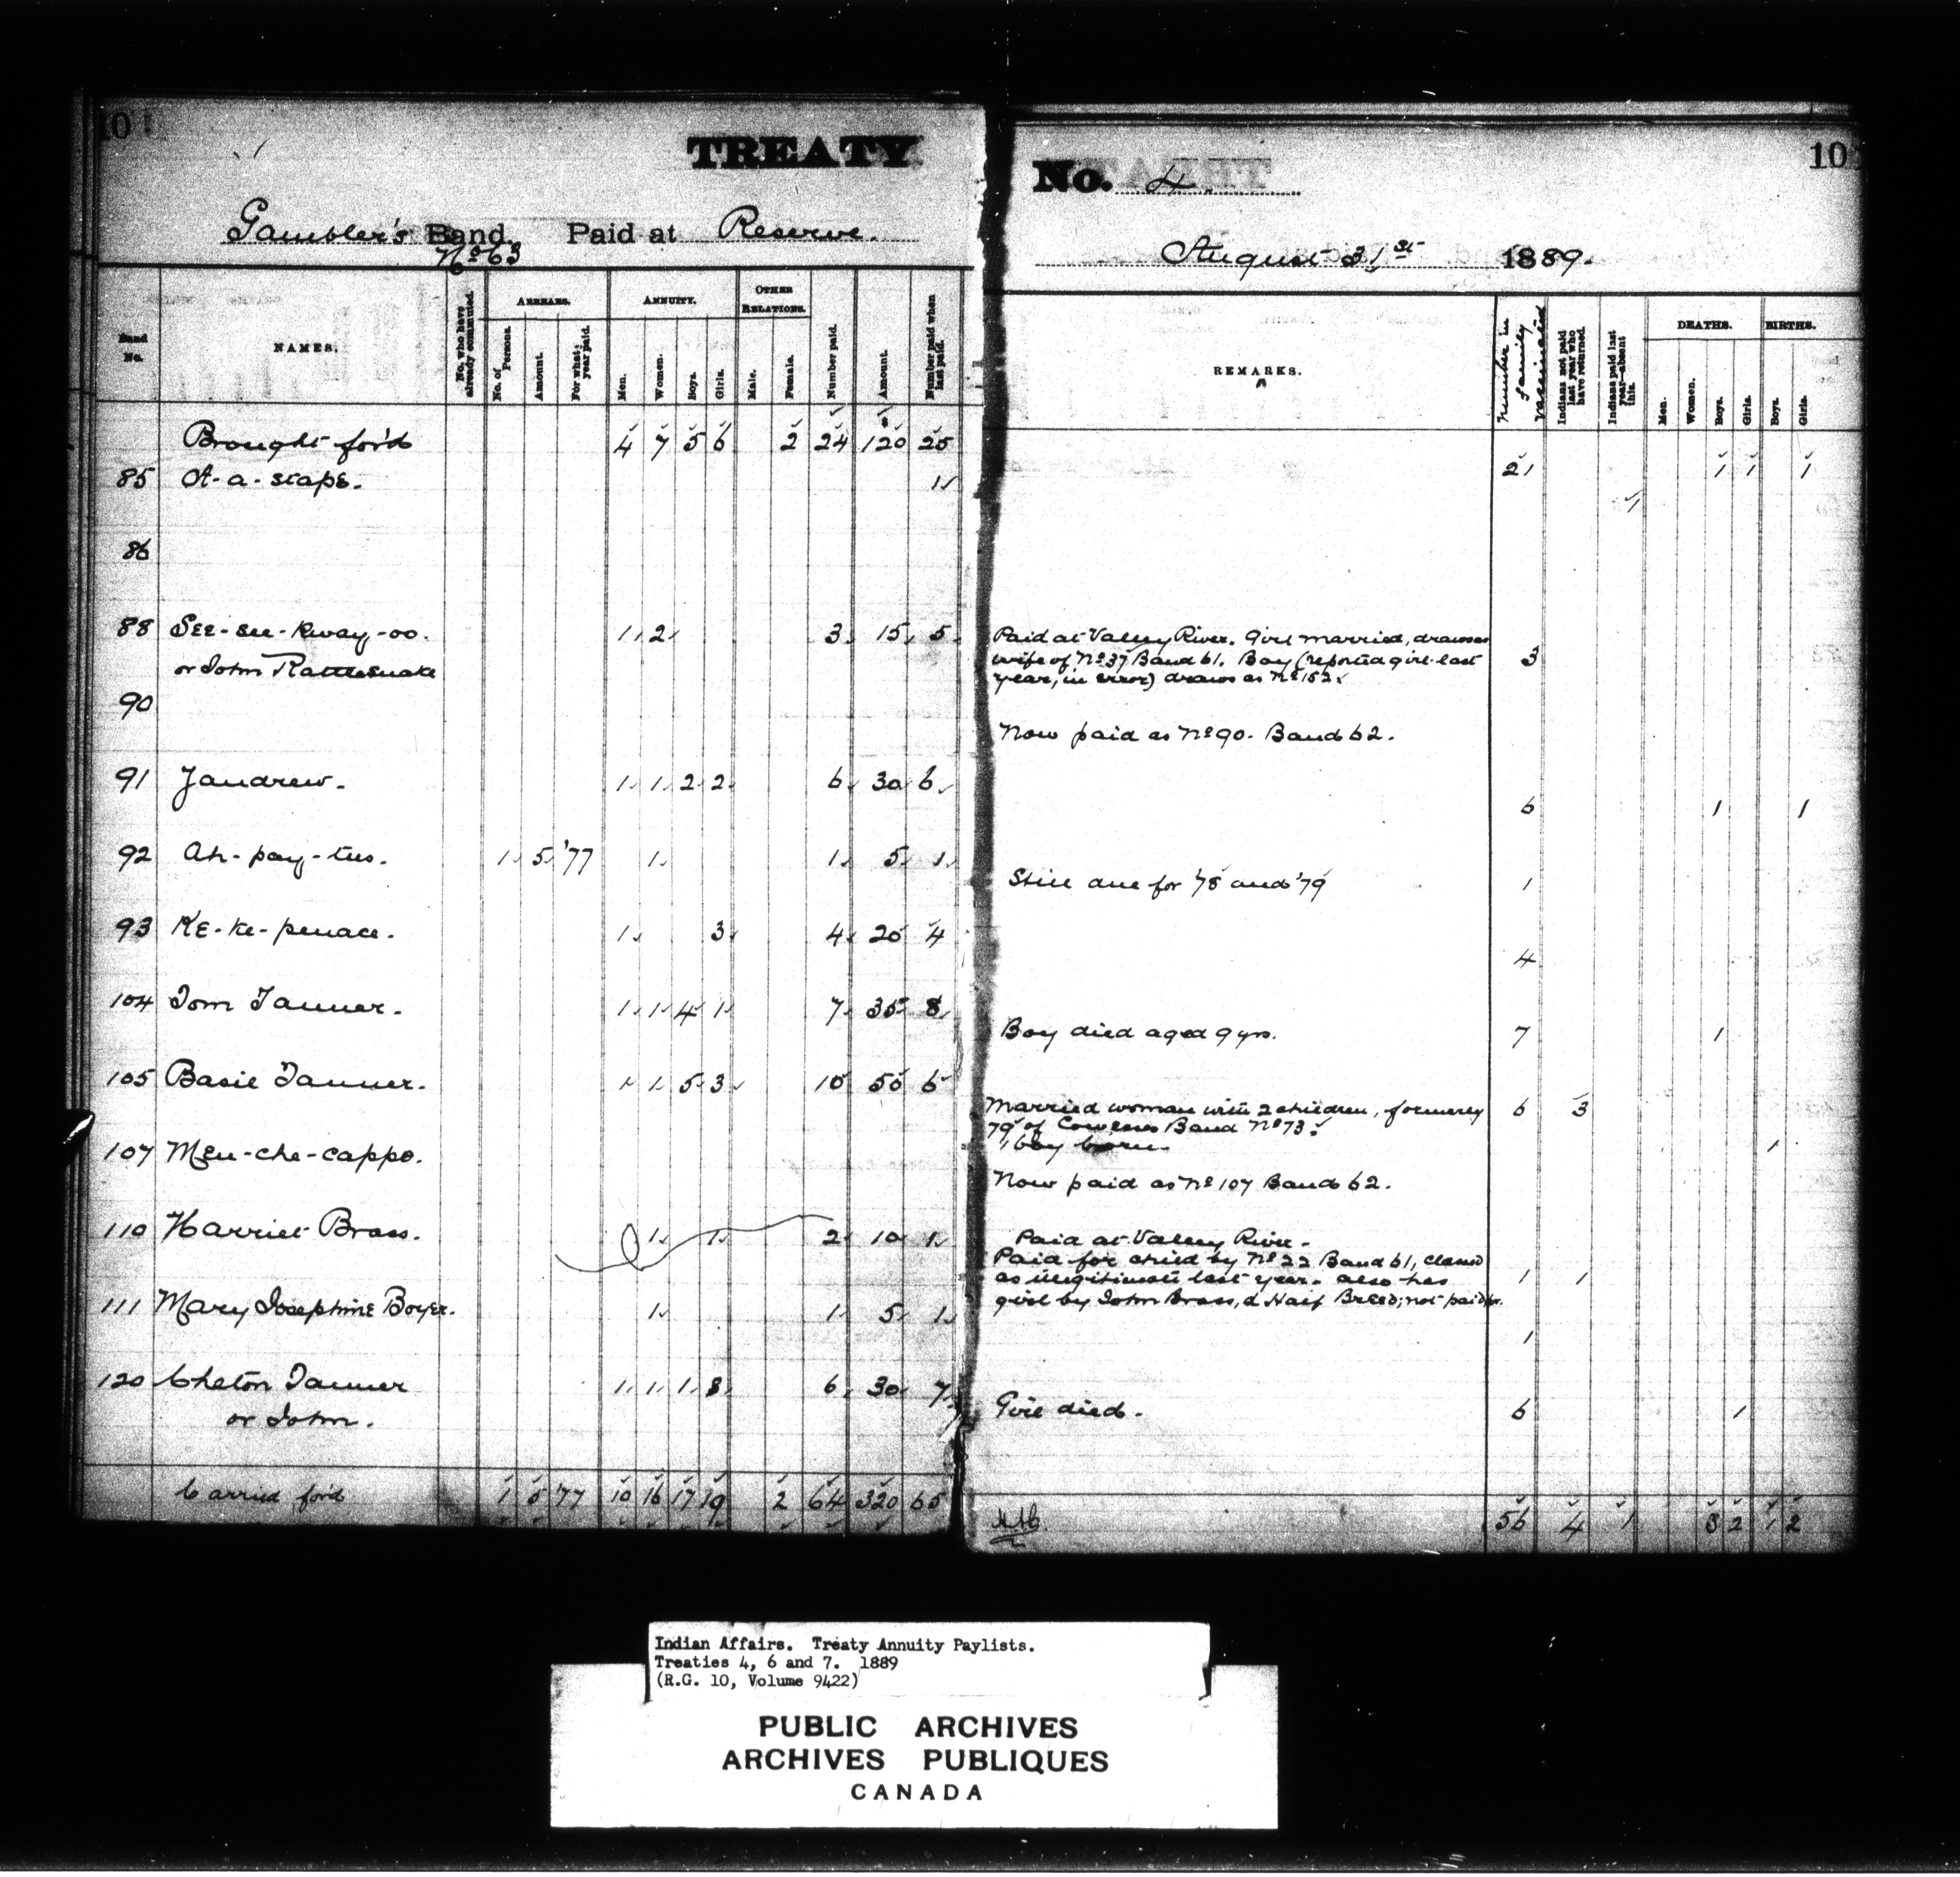 101
TREATY
No. 4.
10
Gambler's Band. Paid at Reserve.
No 63
August 31st 1889.
Band No.
NAMES.
No. who have already commuted.
ARREARS.
No. of Persons.
Amount.
For what year paid.
ANNUITY.
Men.
Women.
Boys.
Girls.
OTHER RELATIONS.
Male.
Female.
Number paid.
Amount.
Number paid when last paid.
REMARKS.
Number in family vaccinated
Indians not paid last year who have returned.
Indians paid last year—absent this.
DEATHS.
Men.
Women.
Boys.
Girls.
BIRTHS.
Boys.
Girls.
Brought for'd 4 7 5 6 2 24 120 25 21 1 1 1
85 A-a-staps. 1 1
86
88 See-see-kway-oo. 1 2 3 15 5
or John Rattlesnake
Paid at Valley River. Girl married, draws as
wife of No 37 Band 61. Boy (reported girl last 3
year, in error) draws as No 152.
90
Now paid as No 90. Band 62.
91 Jandrew. 1 1 2 2 6 30 6 6 1 1
92 Ah-pay-tus. 1 5 '77 1 1 5 1 Still due for '78 and '79 1
93 Ke-ke-penace. 1 3 4 20 4 4
104 Tom Tanner. 1 1 4 1 7 35 8 Boy died aged 9 yrs. 7 1
105 Basil Tanner. 1 1 5 3 10 50 6
Married woman with 2 children, formerly 6 3
79 of Cowesess Band No 73.
1 boy born. 1
107 Men-che-cappo.
Now paid as No 107 Band 62.
110 Harriet Brass. 1 1 2 10 1 Paid at Valley River.
Paid for child by No 22 Band 61, classed
as illegitimate last year. also has 1 1
girl by John Brass, a Half Breed; not paid for.
111 Mary Josephine Boyer. 1 1 5 1 1
120 Cheton Tanner 1 1 1 3 6 30 7 Girl died. 6 1
or John.
Carried for'd 1 5 '77 10 16 17 19 2 64 320 65 56 4 1 3 2 1 2
Indian Affairs. Treaty Annuity Paylists.
Treaties 4, 6 and 7. 1889
(R.G. 10, Volume 9422)
PUBLIC ARCHIVES
ARCHIVES PUBLIQUES
CANADA